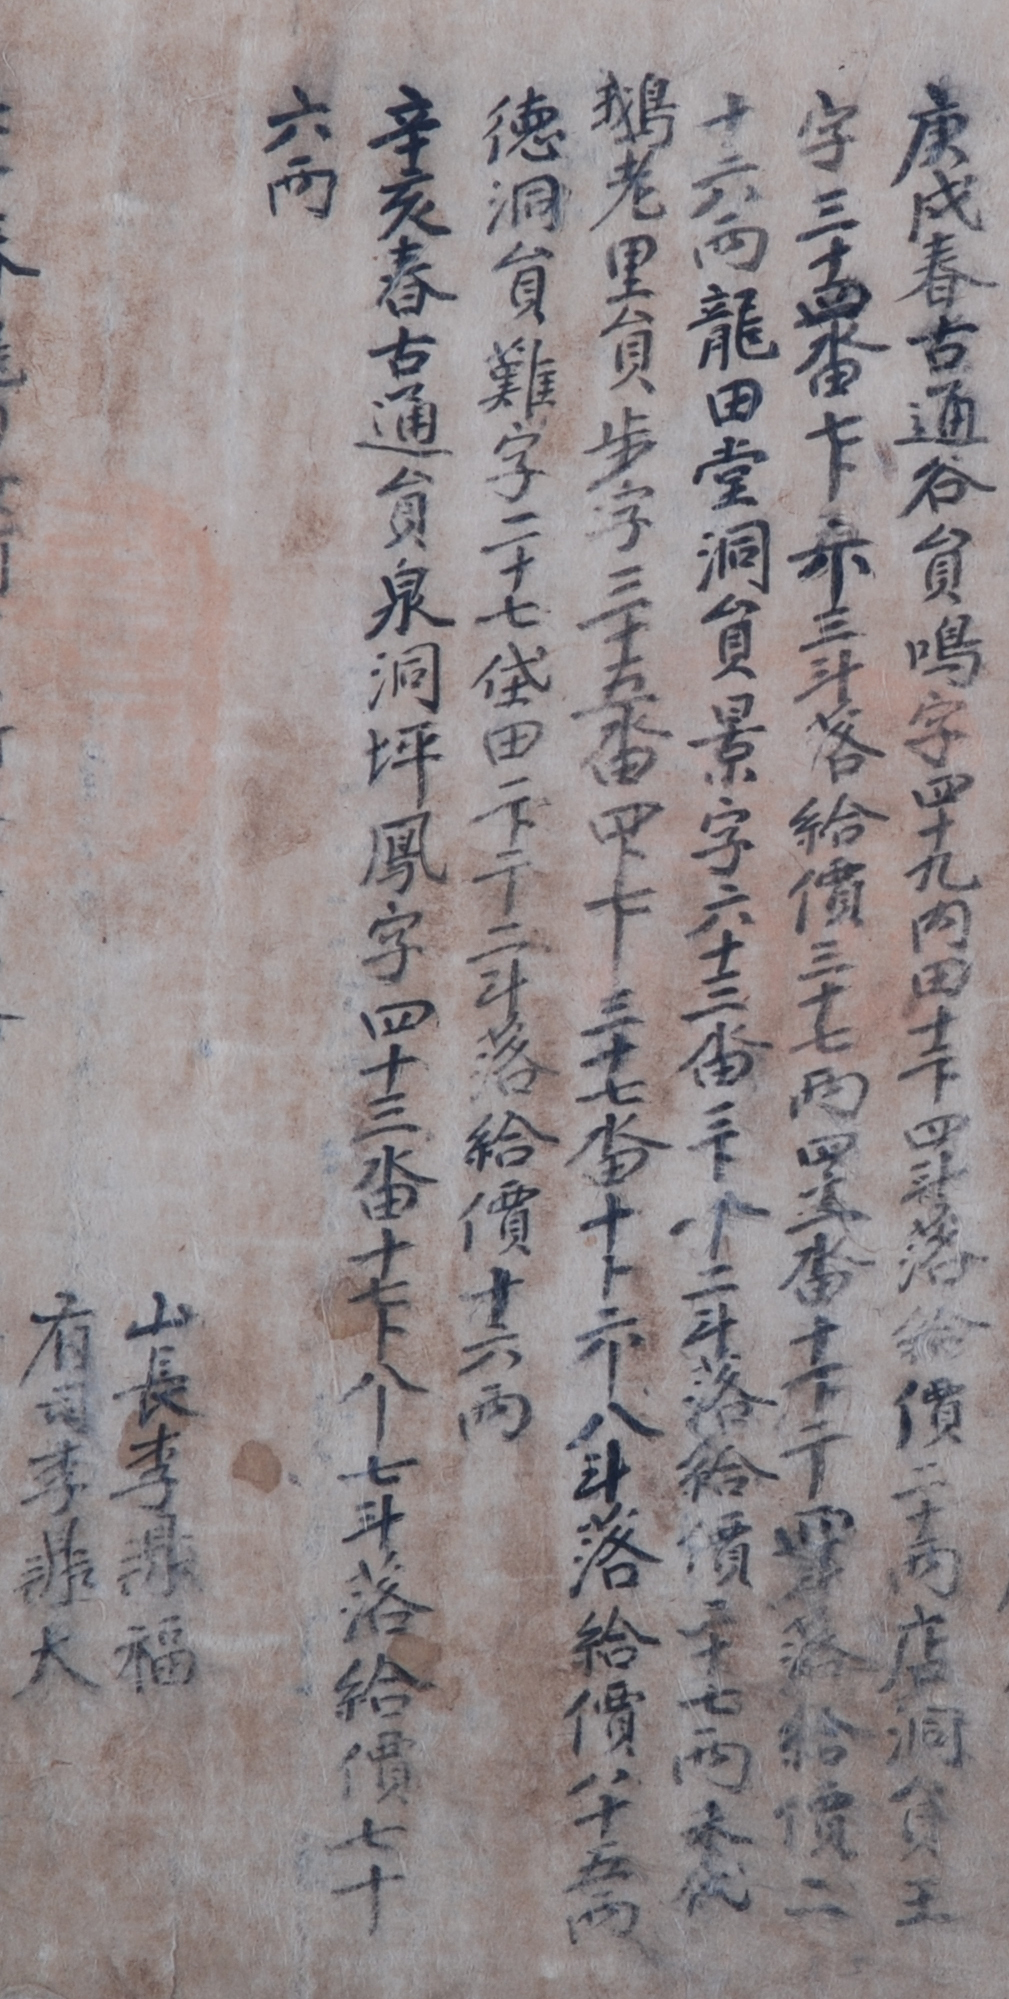 庚戌春古通谷員鳴字四十九內田十卜四斗落給價二十兩店洞員王
字三十四畓卞示三斗落給價三十七兩四五畓十二卜二斗落給價二
十六兩龍田堂洞員景字六十三畓二卜二斗落給價二十七兩
鵝老里員步字三十五畓四卜三十七畓十卜八斗落給價八十五兩
德洞員難字二十七垈田二卜二斗落給價十六兩
辛亥春古通員泉洞坪鳳字四十三畓十七卜七斗落給價七十
六兩
山長李鼎福
有司李鼎大